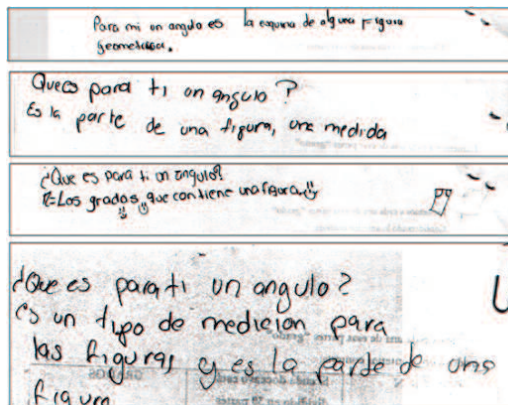 Para mi un angulo es la esquina de alguna figura
geometrica.
Que es para ti un angulo?
Es la parte de una figura, una medida
¿Que es para ti un angulo?
R= Los grados que contiene una figura
¿Que es para ti un angulo?
es un tipo de medicion para
las figuras y es la parte de una
figura